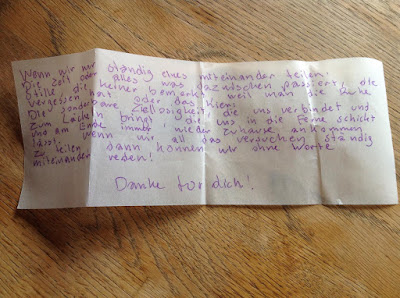 Wenn wir nur ständig eines miteinander teilen:
Die Zeit oder alles was dazwischen passiert, die
Stille die keiner bemerkt weil man die Ruhe
vergessen hat oder das
Die sonderbare Ziellosigkeit die uns verbindet und
zum Lächeln bringt, die uns in die Ferne schickt
und am Ende immer wieder zuhause ankommen
lässt, wenn wir all das versuchen ständig
zu teilen dann können wir ohne Worte
miteinander reden!
Danke für dich!